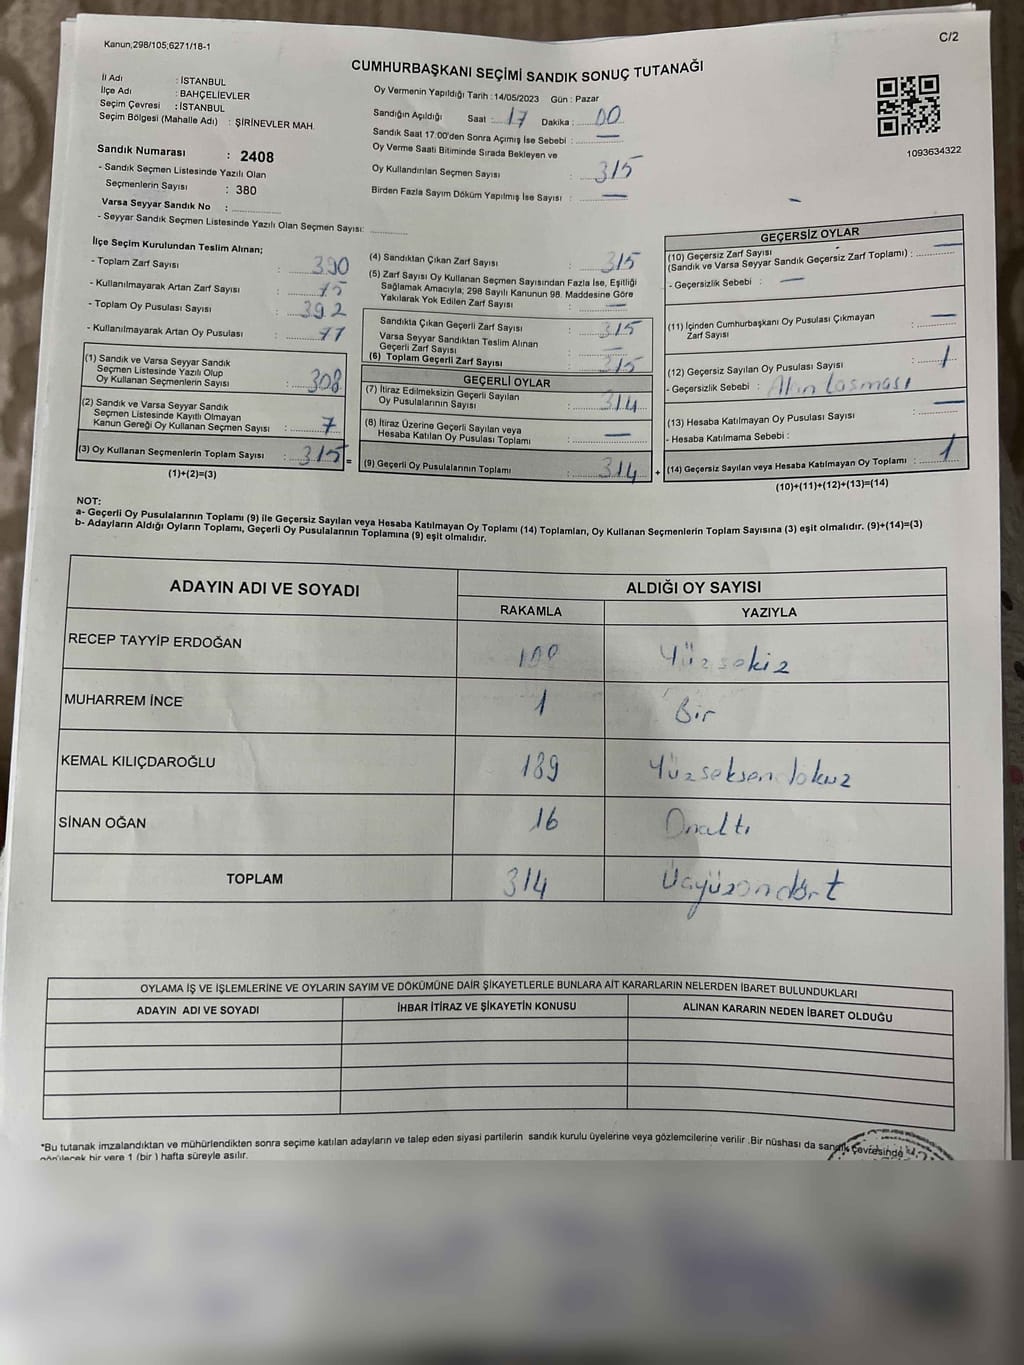 Kanun,298/105;6271/18-1
C/2
CUMHURBAŞKANI SEÇİMİ SANDIK SONUÇ TUTANAĞI
İl Adı : İSTANBUL
İlçe Adı : BAHÇELİEVLER
Seçim Çevresi : İSTANBUL
Seçim Bölgesi (Mahalle Adı) : ŞİRİNEVLER MAH.
Sandık Numarası : 2408
- Sandık Seçmen Listesinde Yazılı Olan
Seçmenlerin Sayısı : 380
Varsa Seyyar Sandık No :
- Seyyar Sandık Seçmen Listesinde Yazılı Olan Seçmen Sayısı:
Oy Vermenin Yapıldığı Tarih : 14/05/2023 Gün : Pazar
Sandığın Açıldığı Saat : 17 Dakika : 00
Sandık Saat 17:00'den Sonra Açımış İse Sebebi : —
Oy Verme Saati Bitiminde Sırada Bekleyen ve
Oy Kullandırılan Seçmen Sayısı : 315
Birden Fazla Sayım Döküm Yapılmış İse Sayısı : —
1093634322
İlçe Seçim Kurulundan Teslim Alınan;
- Toplam Zarf Sayısı : 390
- Kullanılmayarak Artan Zarf Sayısı : 75
- Toplam Oy Pusulası Sayısı : 392
- Kullanılmayarak Artan Oy Pusulası : 77
(1) Sandık ve Varsa Seyyar Sandık
Seçmen Listesinde Yazılı Olup
Oy Kullanan Seçmenlerin Sayısı : 308
(2) Sandık ve Varsa Seyyar Sandık
Seçmen Listesinde Kayıtlı Olmayan
Kanun Gereği Oy Kullanan Seçmen Sayısı : 7
(3) Oy Kullanan Seçmenlerin Toplam Sayısı : 315 =
(1)+(2)=(3)
(4) Sandıktan Çıkan Zarf Sayısı : 315
(5) Zarf Sayısı Oy Kullanan Seçmen Sayısından Fazla İse, Eşitliği
Sağlamak Amacıyla; 298 Sayılı Kanunun 98. Maddesine Göre
Yakılarak Yok Edilen Zarf Sayısı : —
Sandıkta Çıkan Geçerli Zarf Sayısı : 315
Varsa Seyyar Sandıktan Teslim Alınan
Geçerli Zarf Sayısı : —
(6) Toplam Geçerli Zarf Sayısı : 315
GEÇERLİ OYLAR
(7) İtiraz Edilmeksizin Geçerli Sayılan
Oy Pusulalarının Sayısı : 314
(8) İtiraz Üzerine Geçerli Sayılan veya
Hesaba Katılan Oy Pusulası Toplamı : —
(9) Geçerli Oy Pusulalarının Toplamı : 314 +
GEÇERSİZ OYLAR
(10) Geçersiz Zarf Sayısı
(Sandık ve Varsa Seyyar Sandık Geçersiz Zarf Toplamı) : —
- Geçersizlik Sebebi : —
(11) İçinden Cumhurbaşkanı Oy Pusulası Çıkmayan
Zarf Sayısı : —
(12) Geçersiz Sayılan Oy Pusulası Sayısı : 1
- Geçersizlik Sebebi :
(13) Hesaba Katılmayan Oy Pusulası Sayısı : —
- Hesaba Katılmama Sebebi :
(14) Geçersiz Sayılan veya Hesaba Katılmayan Oy Toplamı : 1
(10)+(11)+(12)+(13)=(14)
NOT:
a- Geçerli Oy Pusulalarının Toplamı (9) ile Geçersiz Sayılan veya Hesaba Katılmayan Oy Toplamı (14) Toplamları, Oy Kullanan Seçmenlerin Toplam Sayısına (3) eşit olmalıdır. (9)+(14)=(3)
b- Adayların Aldığı Oyların Toplamı, Geçerli Oy Pusulalarının Toplamına (9) eşit olmalıdır.
ADAYIN ADI VE SOYADI ALDIĞI OY SAYISI
RAKAMLA YAZIYLA
RECEP TAYYİP ERDOĞAN 108 Yüzsekiz
MUHARREM İNCE 1 Bir
KEMAL KILIÇDAROĞLU 189 Yüzseksendokuz
SİNAN OĞAN 16 Onaltı
TOPLAM 314 Üçyüzondört
OYLAMA İŞ VE İŞLEMLERİNE VE OYLARIN SAYIM VE DÖKÜMÜNE DAİR ŞİKAYETLERLE BUNLARA AİT KARARLARIN NELERDEN İBARET BULUNDUKLARI
ADAYIN ADI VE SOYADI İHBAR İTİRAZ VE ŞİKAYETİN KONUSU ALINAN KARARIN NEDEN İBARET OLDUĞU
*Bu tutanak imzalandıktan ve mühürlendikten sonra seçime katılan adayların ve talep eden siyasi partilerin sandık kurulu üyelerine veya gözlemcilerine verilir .Bir nüshası da sandık çevresinde
görülecek bir yere 1 (bir ) hafta süreyle asılır.